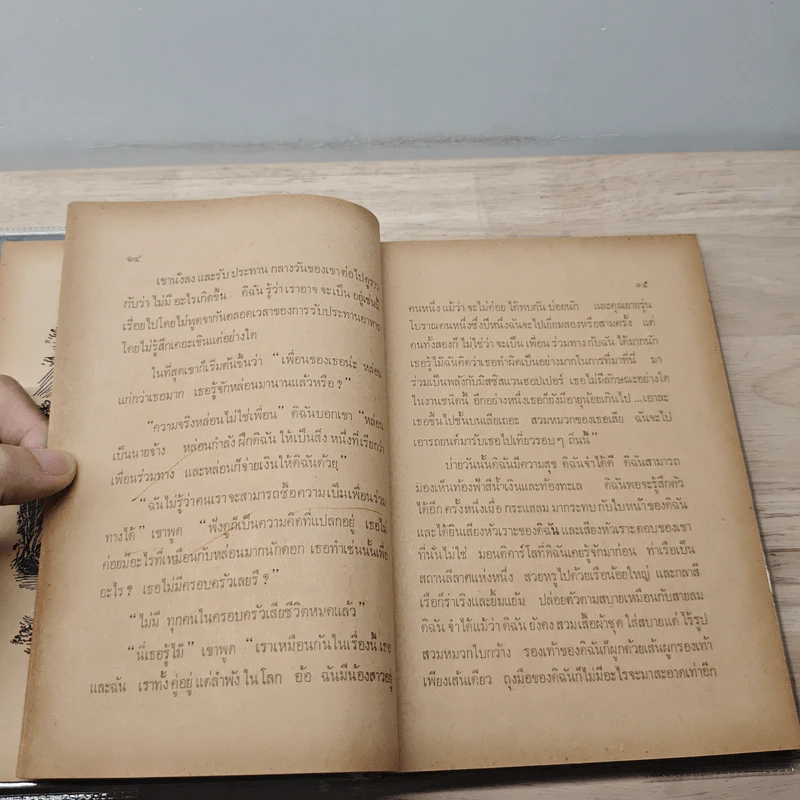 ๑๔
เขานั่งลง และรับ ประทาน กลางวันของเขา ต่อไปดูราว
กับว่า ไม่มี อะไรเกิดขึ้น ดิฉัน รู้ว่า เราอาจ จะเป็น อยู่เช่นนี้
เรื่อยไปโดยไม่พูดจากันตลอดเวลาของการ รับประทานอาหาร
โดยไม่รู้สึกเคอะเขินแต่อย่างใด
ในที่สุดเขาก็เริ่มต้นขึ้นว่า “เพื่อนของเธอน่ะ หล่อน
แก่กว่าเธอมาก เธอรู้จักหล่อนมานานแล้วหรือ ?”
“ความจริงหล่อนไม่ใช่เพื่อน” ดิฉันบอกเขา “หล่อน
เป็นนายจ้าง หล่อนกำลัง ฝึกดิฉัน ให้เป็นสิ่ง หนึ่งที่เรียกว่า
เพื่อนร่วมทาง และหล่อนก็จ่ายเงินให้ดิฉันด้วย”
“ฉันไม่รู้ว่าคนเราจะสามารถซื้อความเป็นเพื่อนร่วม
ทางได้” เขาพูด “ฟังดูก็เป็นความคิดที่แปลกอยู่ เธอไม่
ค่อยมีอะไรที่เหมือนกับหล่อนมากนักดอก เธอทำเช่นนั้นเพื่อ
อะไร ? เธอไม่มีครอบครัวเลยรึ ?”
“ไม่มี ทุกคนในครอบครัวเสียชีวิตหมดแล้ว”
“นี่เธอรู้ไม๊” เขาพูด “เราเหมือนกันในเรื่องนี้ เธอ
และฉัน เราทั้ง คู่อยู่ แต่ลำพัง ใน โลก อ้อ ฉันมีน้องสาวอยู่
๑๕
คนหนึ่ง แม้ว่า จะไม่ค่อย ได้พบกัน บ่อยนัก และคุณยายรุ่น
โบราณคนหนึ่งซึ่งปีหนึ่งฉันจะไปเยี่ยมสองหรือสามครั้ง แต่
คนทั้งสองก็ ไม่ใช่ว่า จะเป็น เพื่อน ร่วมทาง กับฉัน ได้มากนัก
เธอรู้ไม๊ฉันคิดว่าเธอทำผิดเป็นอย่างมากในการที่มาที่นี่ มา
ร่วมเป็นพลังกับมิสซิสแวนฮอปเปอร์ เธอไม่มีลักษณะอย่างใด
ในงานชนิดนี้ อีกอย่างหนึ่งเธอก็ยังมีอายุน้อยเกินไป ...เอาละ
เธอขึ้นไปชั้นบนเสียเถอะ สวมหมวกของเธอเสีย ฉันจะไป
เอารถยนต์มารับเธอไปเที่ยวรอบ ๆ ถิ่นนี้”
บ่ายวันนั้นดิฉันมีความสุข ดิฉันจำได้ดี ดิฉันสามารถ
มองเห็นท้องฟ้าสีน้ำเงินและท้องทะเล ดิฉันพอจะรู้สึกตัว
ได้อีก ครั้งหนึ่งเมื่อ กระแสลม มากระทบ กับใบหน้าของดิฉัน
และได้ยินเสียงหัวเราะของดิฉัน และเสียงหัวเราะตอบของเขา
ที่นั่นไม่ใช่ มอนติคาร์โลที่ดิฉันเคยรู้จักมาก่อน ท่าเรือเป็น
สถานลีลาศแห่งหนึ่ง สวยหรูไปด้วยเรือน้อยใหญ่ และกลาสี
เรือก็ร่าเริงและยิ้มแย้ม ปล่อยตัวตามสบายเหมือนกับสายลม
ดิฉัน จำได้แม้ว่า ดิฉัน ยังคง สวมเสื้อผ้าชุด ใส่สบายแต่ ไร้รูป
สวมหมวกใบกว้าง รองเท้าของดิฉันก็ผูกด้วยเส้นผูกรองเท้า
เพียงเส้นเดียว ถุงมือของดิฉันก็ไม่มีอะไรจะมาสะอาดเท่าอีก